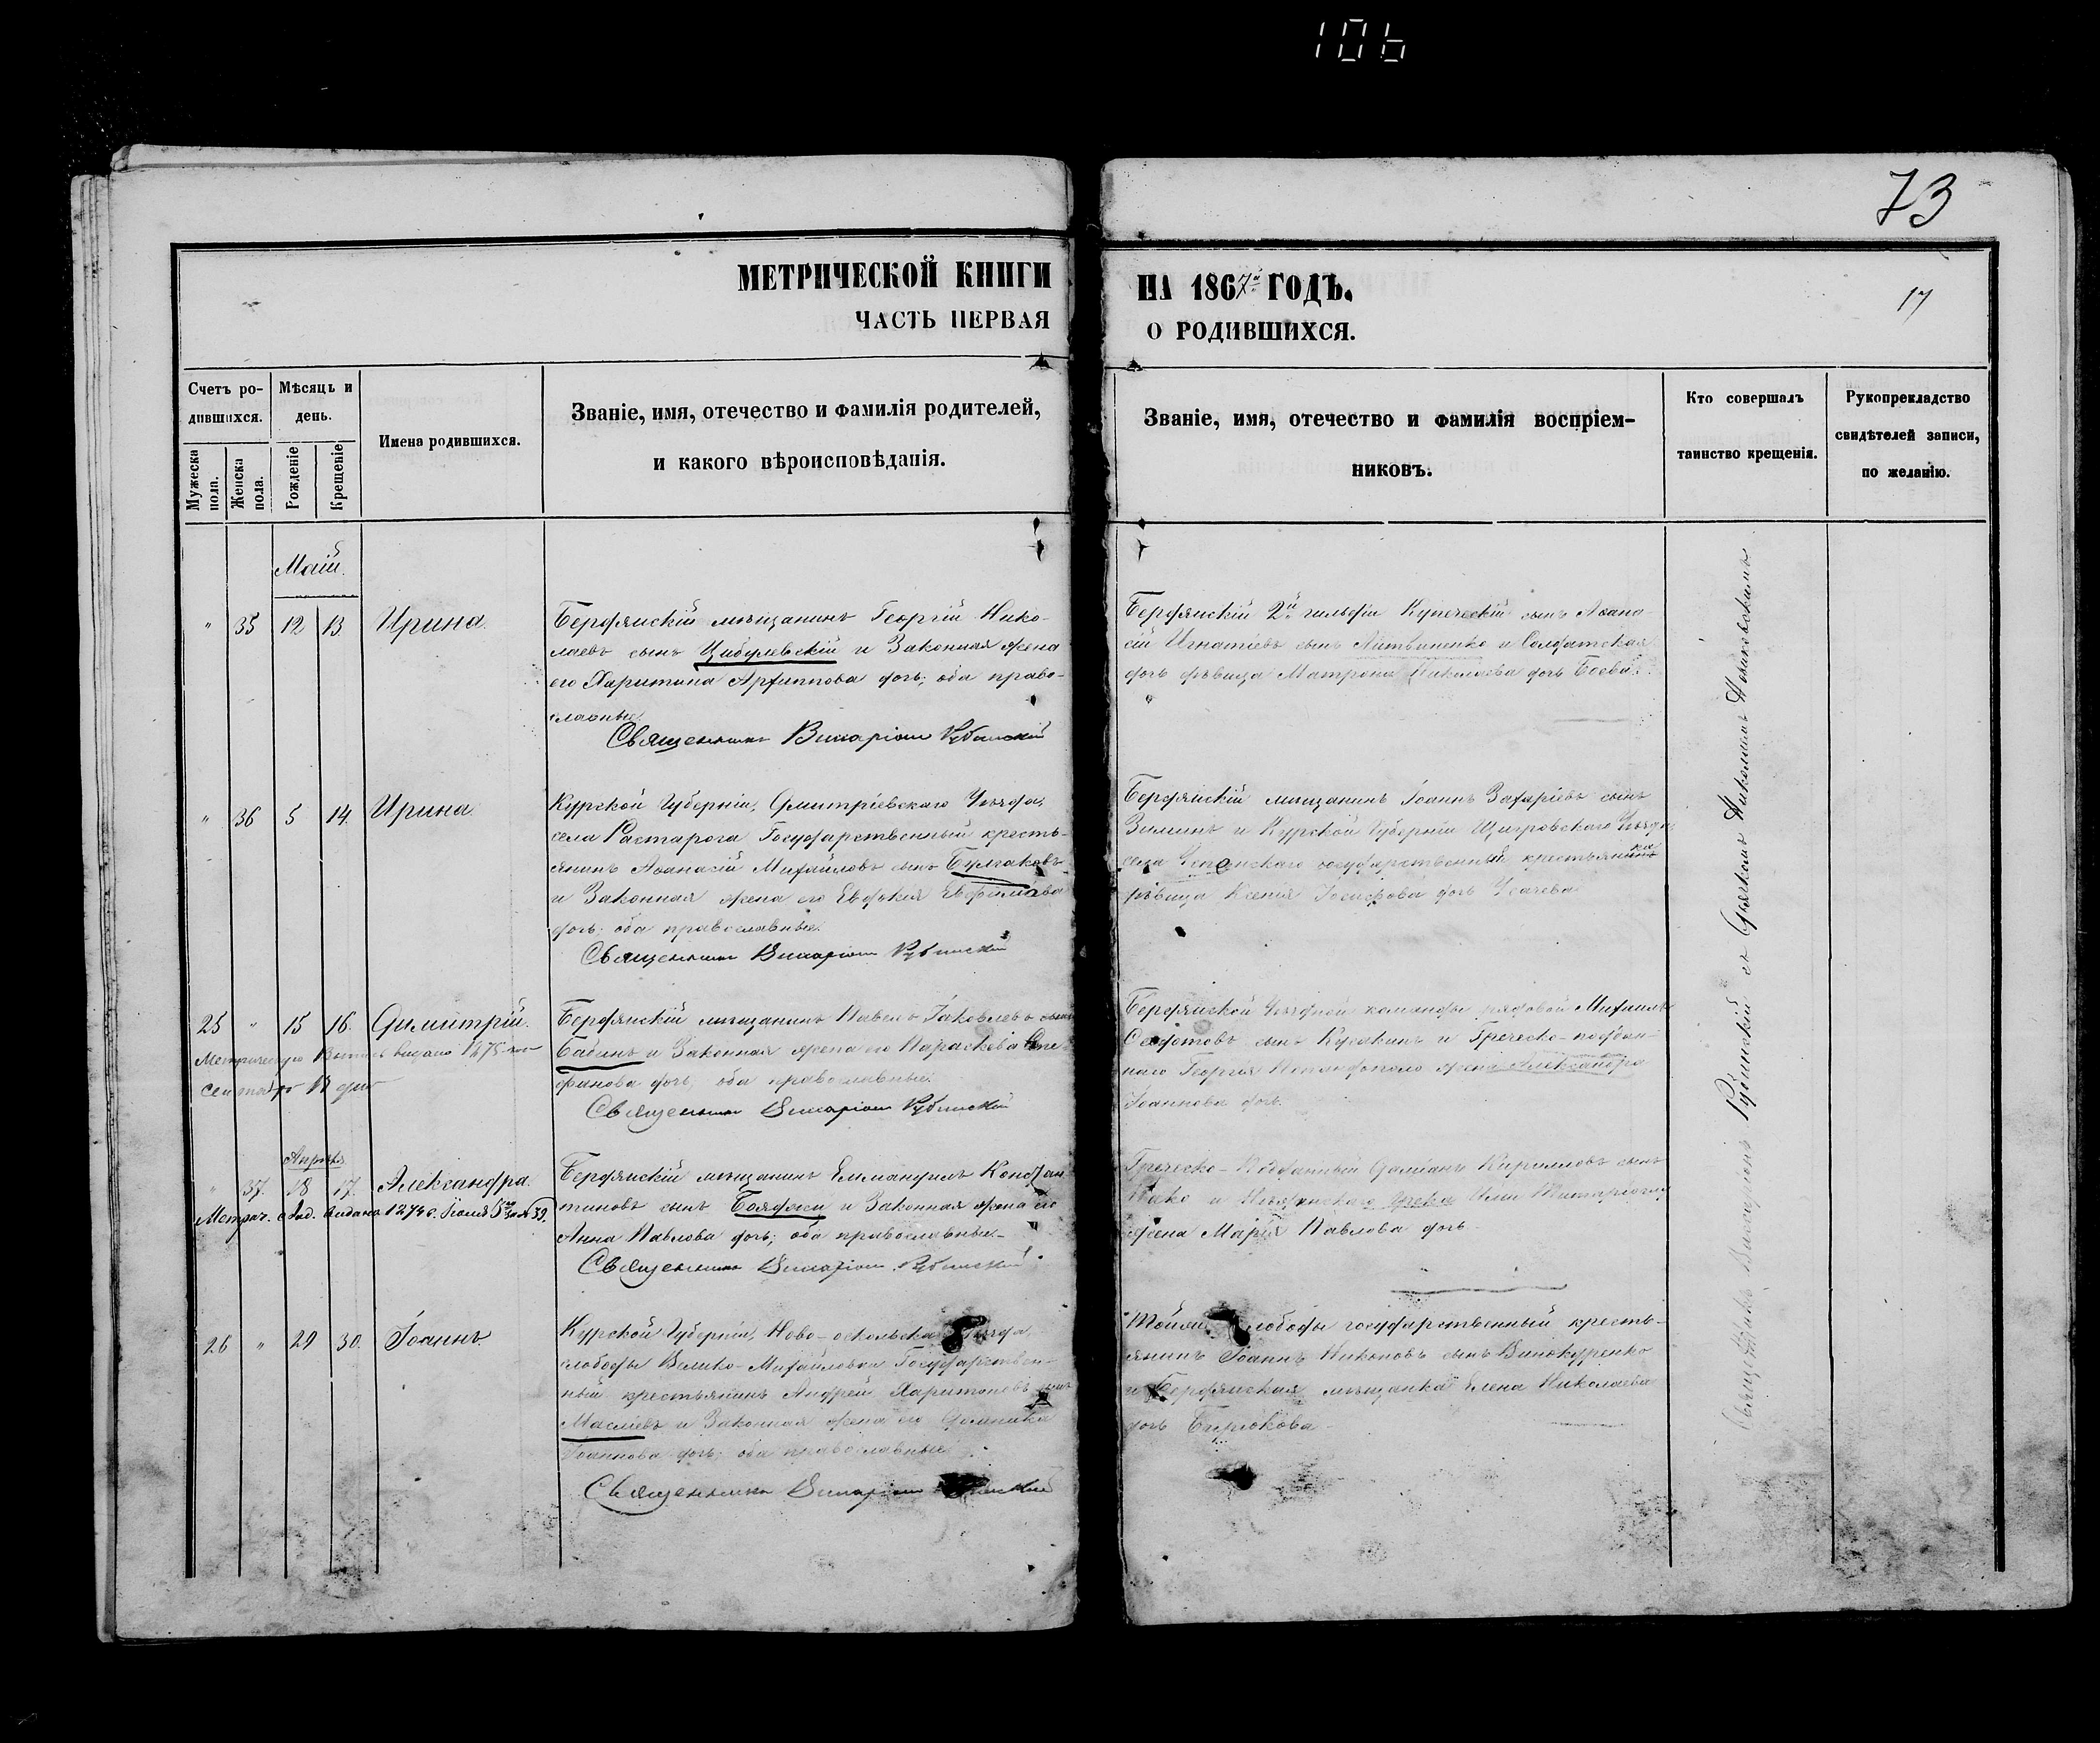 106
73
МЕТРИЧЕСКОЙ КНИГИ
ЧАСТЬ ПЕРВАЯ
НА 1867й ГОДЪ.
О РОДИВШИХСЯ.
17
Счетъ ро-
дившихся.
Мужеска пола.
Женска пола.
Мѣсяцъ и
день.
Рожденіе
Крещеніе
Имена родившихся.
Званіе, имя, отечество и фамилія родителей,
и какого вѣроисповѣданія.
Званіе, имя, отечество и фамилія воспріем-
никовъ.
Кто совершалъ
таинство крещенія.
Рукоприкладство
свидѣтелей записи,
по желанію.
Маій.
" 35 12 13. Ирина.
Бердянскій мѣщанинъ Георгій Нико-
лаевъ сынъ Цибулевскій и Законная жена
его Харитина Архиппова дочь; оба право-
славные.
Священникъ Викаріонъ Рубинскій
Бердянскій 2й гильдіи Купеческій сынъ Аѳана-
сій Игнатіевъ сынъ Литвиненко и Солдатская
дочь дѣвица Матрона Николаева дочь Боева.
" 36 5 14. Ирина.
Курской Губерніи, Дмитріевскаго Уѣзда,
села Растарога Государственный кресть-
янинъ Аѳанасій Михайловъ сынъ Булгаковъ
и Законная жена его Евдокія Евфимова
дочь; оба православные.
Священникъ Викаріонъ Рубинскій
Бердянскій мѣщанинъ Іоаннъ Захаріевъ сынъ
Зиминъ и Курской Губерніи Щигровскаго Уѣзда
села государственный крестьянинъ
дѣвица Ксенія дочь Усачева
25 " 15 16. Димитрій.
Бердянскій мѣщанинъ Павелъ Іаковлевъ сынъ
Бабинъ и Законная жена его Параскева Сте-
фанова дочь, оба православные.
Священникъ Викаріонъ Рубинскій
Бердянской Уѣздной команды рядовой Михаилъ
сынъ и Греческо-поддан-
наго Георгія жена Александра
Іоаннова дочь.
Апрѣля
" 37. 18 17. Александра.
Бердянскій мѣщанинъ Еммануилъ Констан-
тиновъ сынъ и Законная жена его
Анна Павлова дочь; оба православные.
Священникъ Викаріонъ Рубинскій
Греческо-Подданный Даміанъ Кирилловъ сынъ
жена Марія Павлова дочь
26 " 29 30. Іоаннъ.
Курской Губерніи, Ново-оскольскаго Уѣзда,
слободы Велико-Михайловки Государствен-
ный крестьянинъ Андрей Харитоновъ сынъ
Маслiевъ и Законная жена его Домника
Іоаннова дочь; оба православные.
Священникъ Викаріонъ Рубинскій
Той же слободы государственный кресть-
янинъ Іоаннъ Никоновъ сынъ Винокуренко
и Бердянская мѣщанка Елена Николаева
дочь Бирюкова
Священникъ Викаріонъ Рубинскій съ Дьякомъ Николаемъ Новаковскимъ